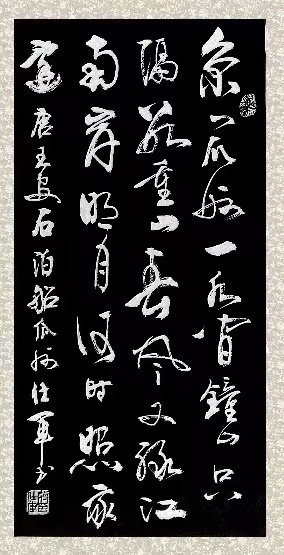 京口瓜洲一水間鐘山只
隔數重山春風又綠江
南岸明月何時照我
還 唐王安石泊船瓜洲 仕軍书